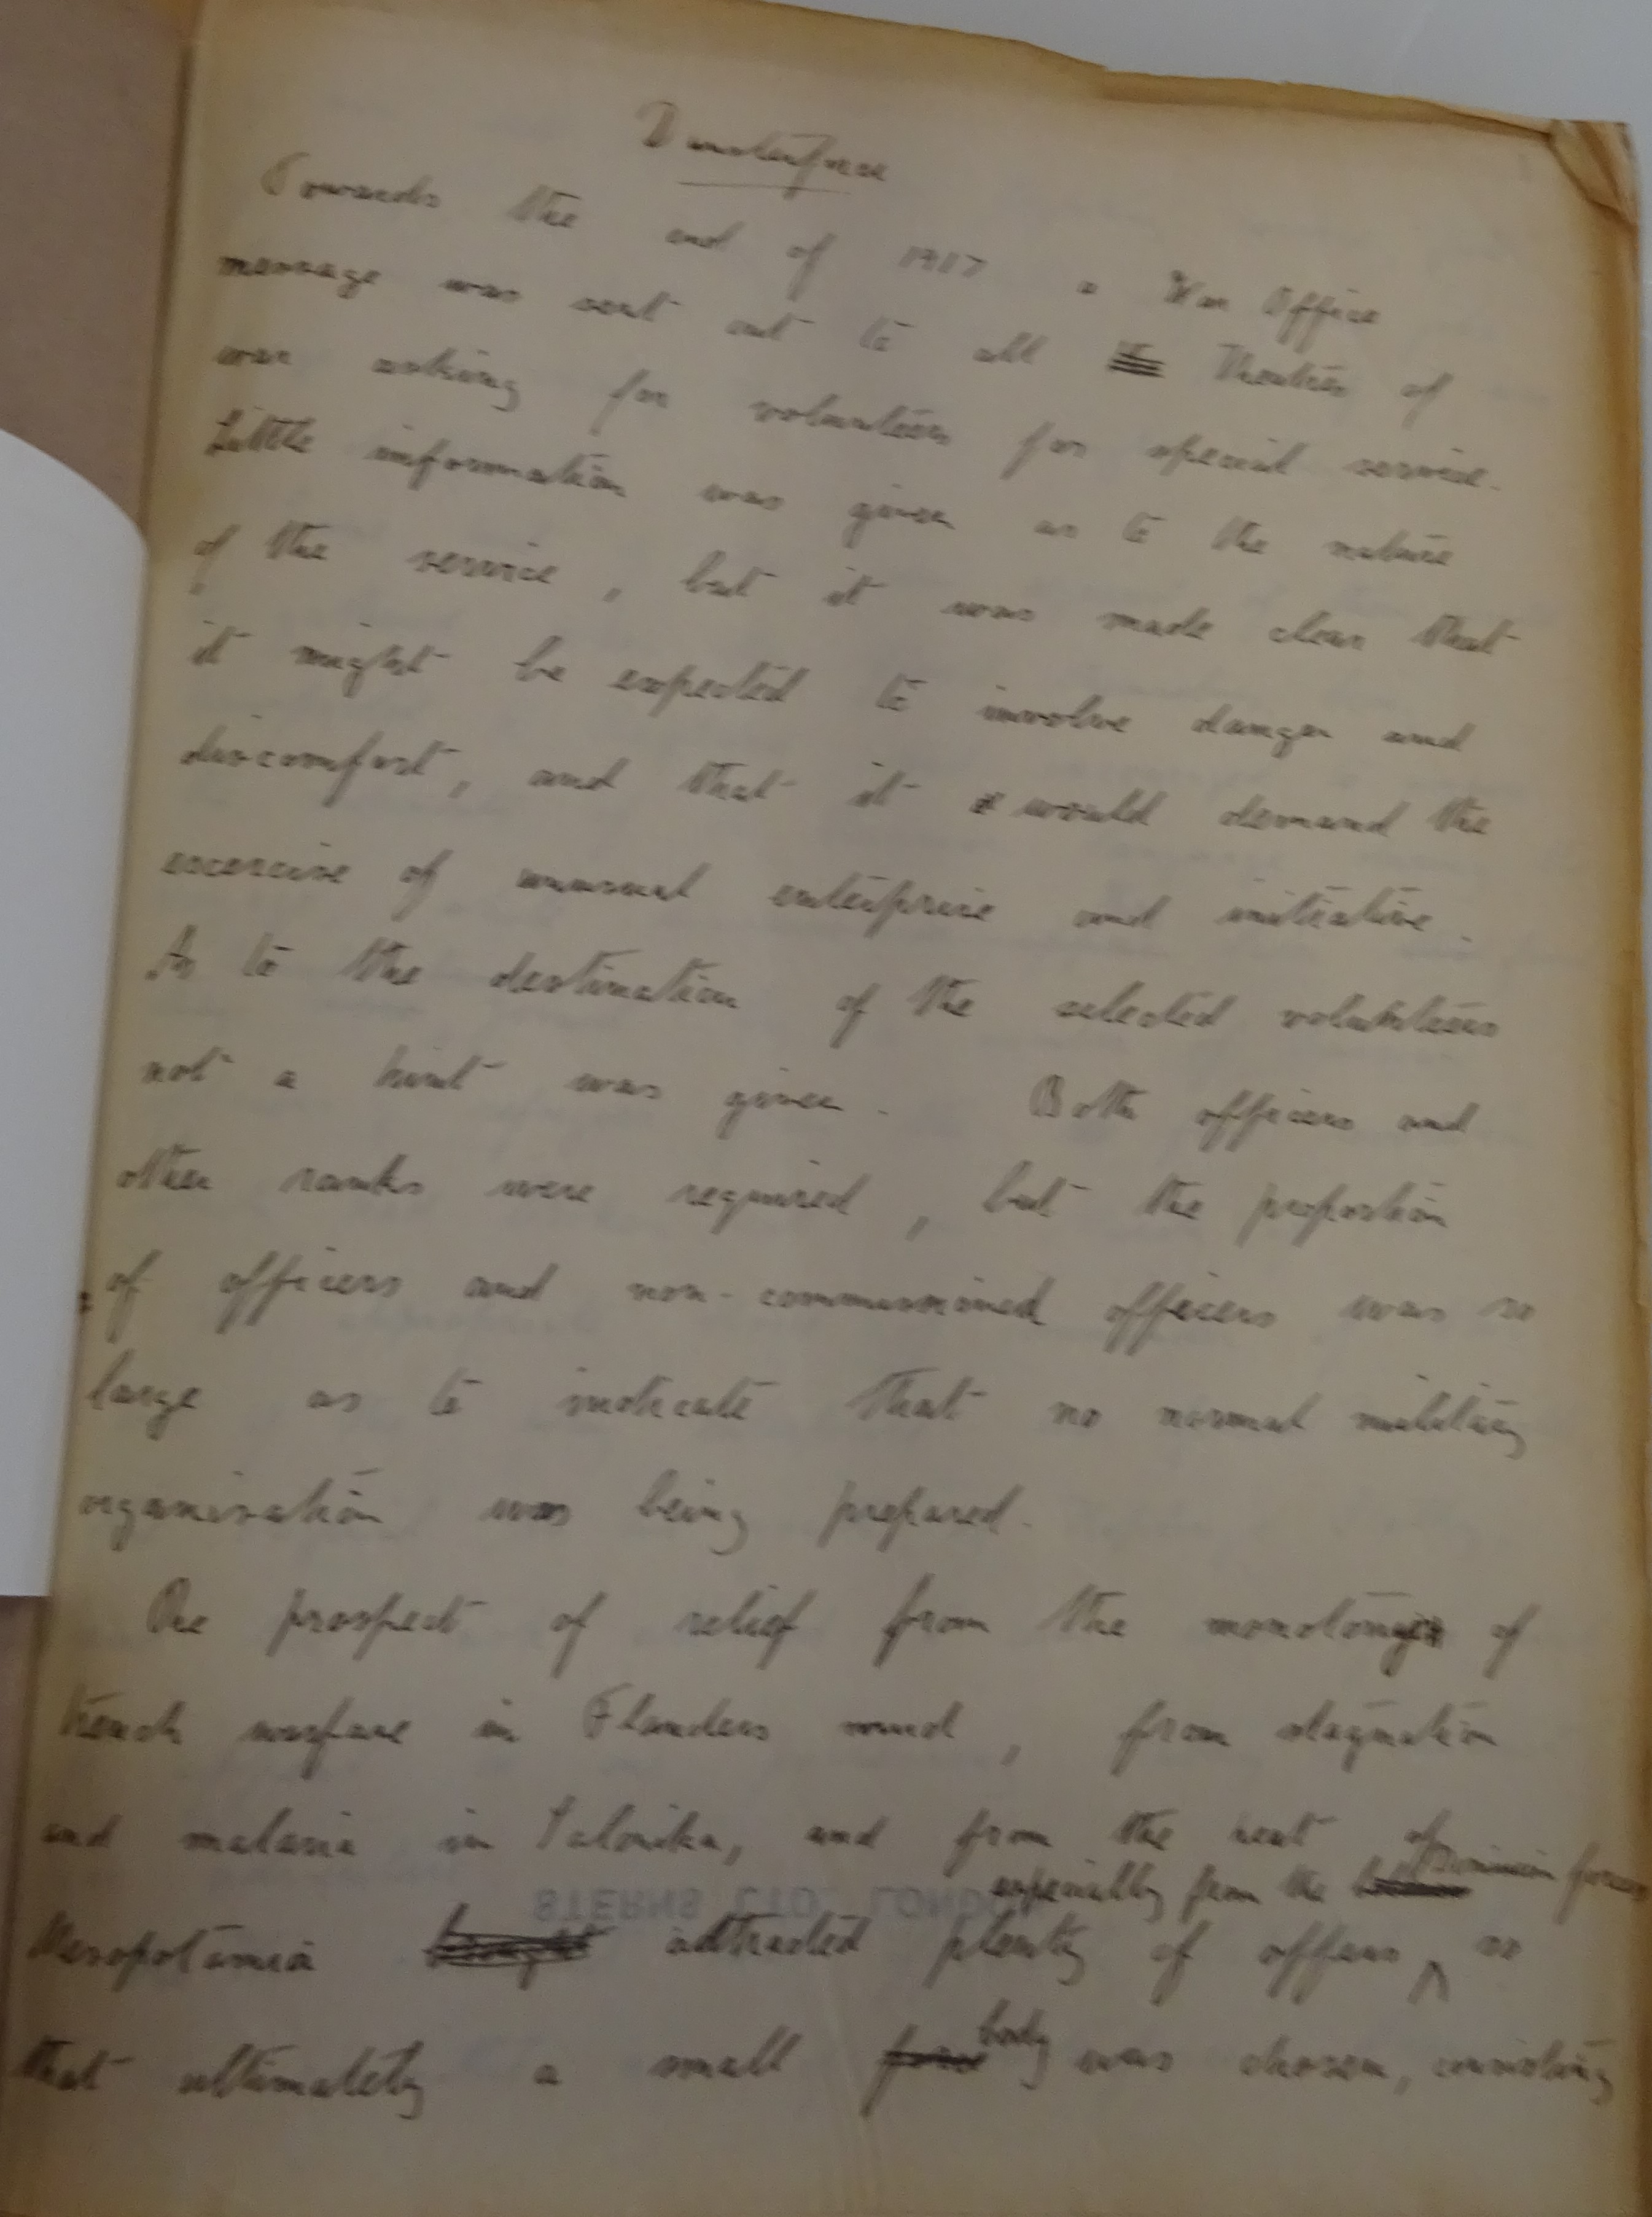 Dunsterforce
Towards the end of 1917 a War Office
message was sent out to all Theatres of
war asking for volunteers for special service.
Little information was given as to the nature
of the service, but it was made clear that
it might be expected to involve danger and
discomfort, and that it would demand the
excercise of unusual enterprise and initiative.
As to the destination of the selected volunteers
not a hint was given. Both officers and
other ranks were required, but the proportion
of officers and non-commissioned officers was so
large as to indicate that no normal military
organisation was being prepared.
The prospect of relief from the monotony of
trench warfare in Flanders mud, from stagnation
and malaria in Salonika, and from the heat of
especially from the Dominion forces
Mesopotamia attracted plenty of offers, so
STERNS LTD. LONDON
that ultimately a small force body was chosen, consisting